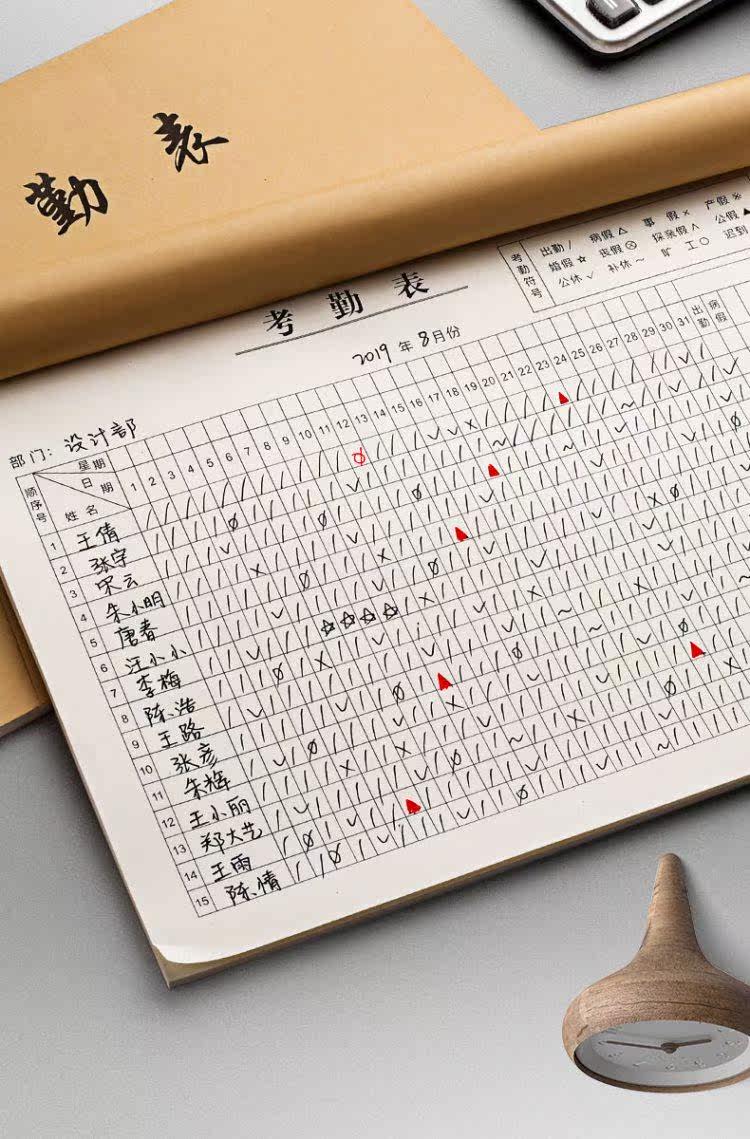 勤 表
考勤表
2019 年 8 月份
考勤符号
出勤 / 病假 △ 事 假 × 产假 ※
婚假 ☆ 丧假 ⊗ 探亲假 ∧ 公假 ▲
公休 ✓ 补休 ~ 旷 工 ○ 迟到
部门: 设计部
顺序号 星期 日期 姓名
1 2 3 4 5 6 7 8 9 10 11 12 13 14 15 16 17 18 19 20 21 22 23 24 25 26 27 28 29 30 31 出勤 病假
1 王倩
2 张宇
3 宋云
4 朱小明
5 唐春
6 汪小小
7 李梅
8 陈浩
9 王路
10 张彦
11 朱辉
12 王小丽
13 郑大艺
14 王雨
15 陈情